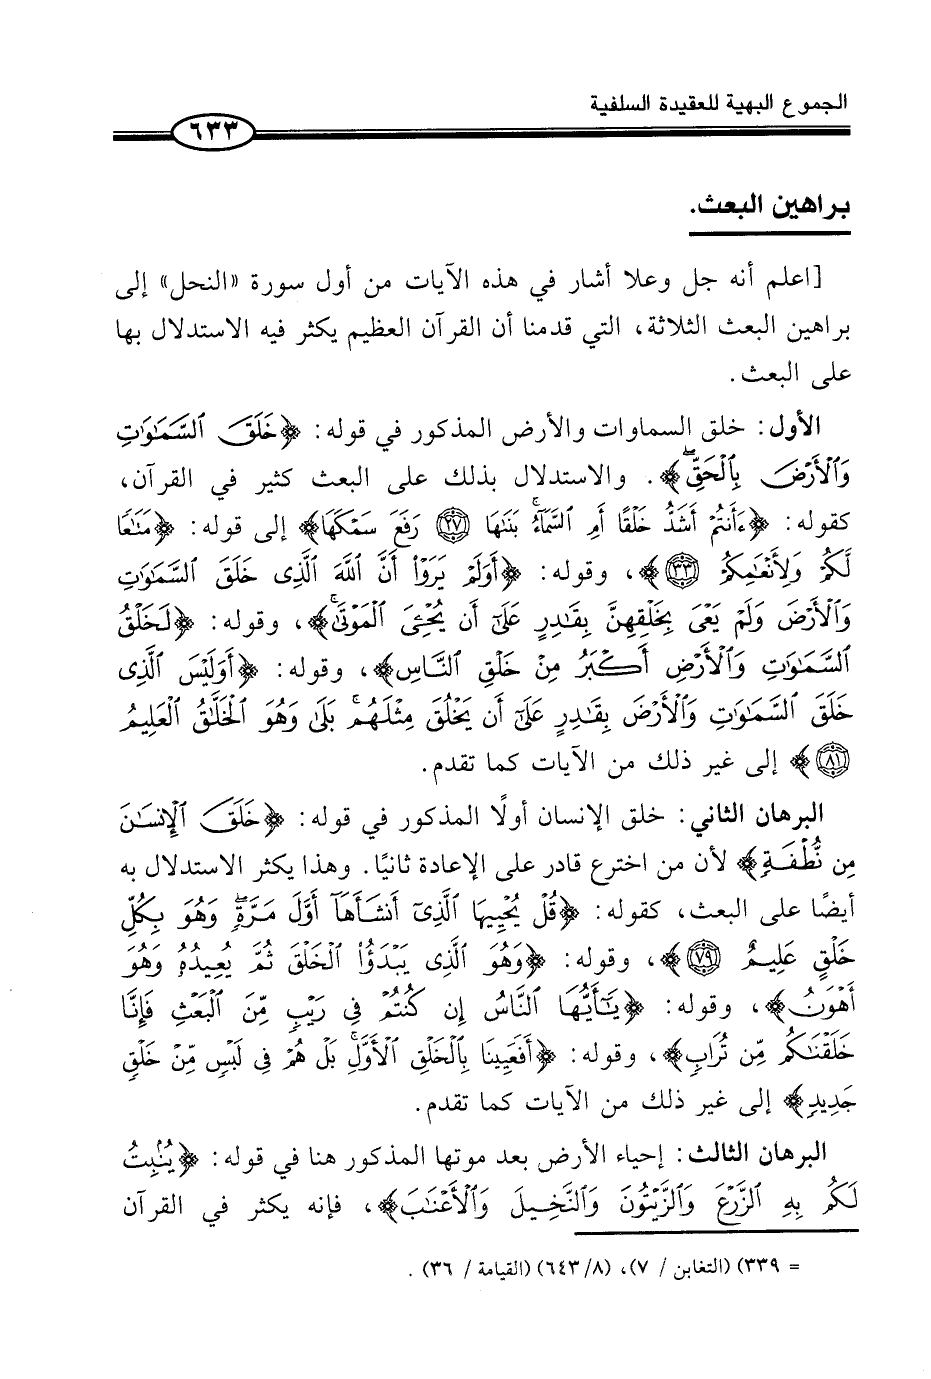 الجموع البهية للعقيدة السلفية
٦٣٣
براهين البعث.
[اعلم أنه جل وعلا أشار في هذه الآيات من أول سورة «النحل» إلى
براهين البعث الثلاثة، التي قدمنا أن القرآن العظيم يكثر فيه الاستدلال بها
على البعث.
الأول: خلق السماوات والأرض المذكور في قوله: ﴿خَلَقَ ٱلسَّمَٰوَٰتِ
وَٱلْأَرْضَ بِٱلْحَقِّۖ﴾. والاستدلال بذلك على البعث كثير في القرآن،
كقوله: ﴿ءَأَنتُمْ أَشَدُّ خَلْقًا أَمِ ٱلسَّمَآءُۚ بَنَىٰهَا ۝٢٧ رَفَعَ سَمْكَهَا﴾ إلى قوله: ﴿مَتَٰعًا
لَّكُمْ وَلِأَنْعَٰمِكُمْ ۝٣٣﴾، وقوله: ﴿أَوَلَمْ يَرَوْا۟ أَنَّ ٱللَّهَ ٱلَّذِى خَلَقَ ٱلسَّمَٰوَٰتِ
وَٱلْأَرْضَ وَلَمْ يَعْىَ بِخَلْقِهِنَّ بِقَٰدِرٍ عَلَىٰٓ أَن يُحْـِۧىَ ٱلْمَوْتَىٰۚ﴾، وقوله: ﴿لَخَلْقُ
ٱلسَّمَٰوَٰتِ وَٱلْأَرْضِ أَكْبَرُ مِنْ خَلْقِ ٱلنَّاسِ﴾، وقوله: ﴿أَوَلَيْسَ ٱلَّذِى
خَلَقَ ٱلسَّمَٰوَٰتِ وَٱلْأَرْضَ بِقَٰدِرٍ عَلَىٰٓ أَن يَخْلُقَ مِثْلَهُمۚ بَلَىٰ وَهُوَ ٱلْخَلَّٰقُ ٱلْعَلِيمُ
۝٨١﴾ إلى غير ذلك من الآيات كما تقدم.
البرهان الثاني: خلق الإنسان أولًا المذكور في قوله: ﴿خَلَقَ ٱلْإِنسَٰنَ
مِن نُّطْفَةٍ﴾ لأن من اخترع قادر على الإعادة ثانيًا. وهذا يكثر الاستدلال به
أيضًا على البعث، كقوله: ﴿قُلْ يُحْيِيهَا ٱلَّذِىٓ أَنشَأَهَآ أَوَّلَ مَرَّةٍۖ وَهُوَ بِكُلِّ
خَلْقٍ عَلِيمٌ ۝٧٩﴾، وقوله: ﴿وَهُوَ ٱلَّذِى يَبْدَؤُا۟ ٱلْخَلْقَ ثُمَّ يُعِيدُهُۥ وَهُوَ
أَهْوَنُ﴾، وقوله: ﴿يَٰٓأَيُّهَا ٱلنَّاسُ إِن كُنتُمْ فِى رَيْبٍ مِّنَ ٱلْبَعْثِ فَإِنَّا
خَلَقْنَٰكُم مِّن تُرَابٍ﴾، وقوله: ﴿أَفَعَيِينَا بِٱلْخَلْقِ ٱلْأَوَّلِۚ بَلْ هُمْ فِى لَبْسٍ مِّنْ خَلْقٍ
جَدِيدٍ﴾ إلى غير ذلك من الآيات كما تقدم.
البرهان الثالث: إحياء الأرض بعد موتها المذكور هنا في قوله: ﴿يُنۢبِتُ
لَكُم بِهِ ٱلزَّرْعَ وَٱلزَّيْتُونَ وَٱلنَّخِيلَ وَٱلْأَعْنَٰبَ﴾، فإنه يكثر في القرآن
= ٣٣٩) (التغابن / ٧)، (٨/ ٦٤٣) (القيامة / ٣٦).